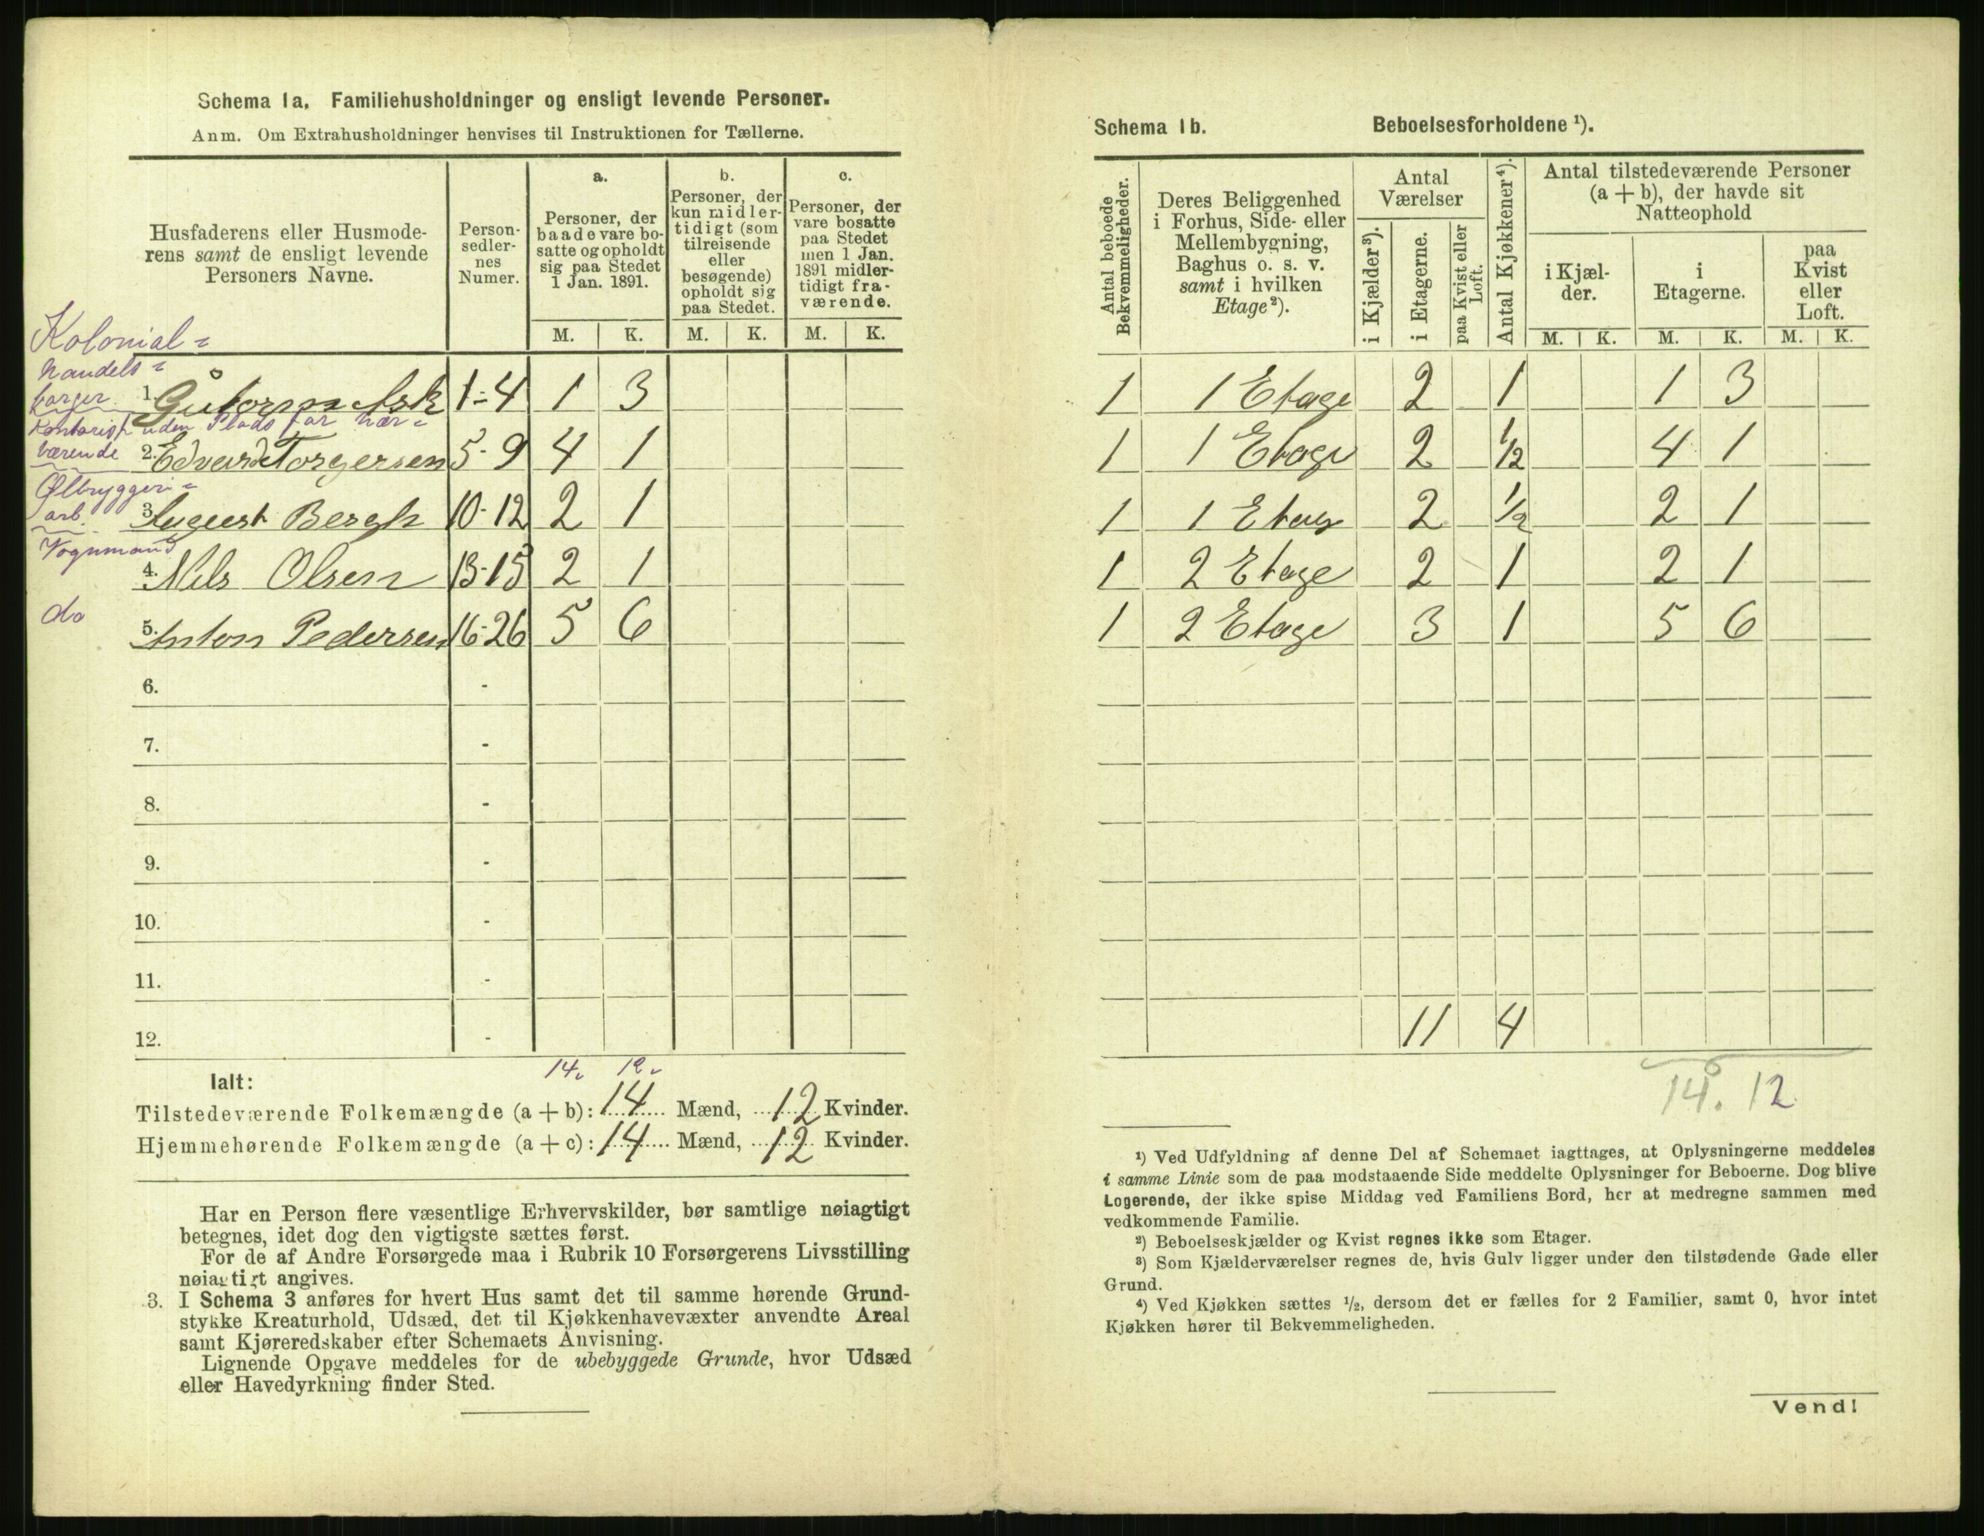 Schema 1a. Familiehusholdninger og ensligt levende Personer.
Anm. Om Extrahusholdninger henvises til Instruktionen for Tællerne.
Husfaderens eller Husmode-
rens samt de ensligt levende
Personers Navne.
Person-
sedler-
nes
Numer.
a.
Personer, der
baade vare bo-
satte og opholdt
sig paa Stedet
1 Jan. 1891.
b.
Personer, der
kun midler-
tidigt (som
tilreisende
eller
besøgende)
opholdt sig
paa Stedet.
c.
Personer, der
vare bosatte
paa Stedet
men 1 Jan.
1891 midler-
tidigt fra-
værende.
M. K. M. K. M. K.
Kolonial-
handels-
borger
1. Guttorm Ask 1-4 1 3
Kontorist uden Plads for nær-
værende
2. Edvard Torgersen 5-9 4 1
Ølbryggeri-
arb.
3. August Bergh 10-12 2 1
Vognmand
4. Nils Olsen 13-15 2 1
do
5. Anton Pedersen 16-26 5 6
6. -
7. -
8. -
9. -
10. -
11. -
12. -
14. 12.
Ialt:
Tilstedeværende Folkemængde (a + b): 14 Mænd, 12 Kvinder.
Hjemmehørende Folkemængde (a + c): 14 Mænd, 12 Kvinder.
Har en Person flere væsentlige Erhvervskilder, bør samtlige nøiagtigt
betegnes, idet dog den vigtigste sættes først.
For de af Andre Forsørgede maa i Rubrik 10 Forsørgerens Livsstilling
nøiagtigt angives.
3. I Schema 3 anføres for hvert Hus samt det til samme hørende Grund-
stykke Kreaturhold, Udsæd, det til Kjøkkenhavevæxter anvendte Areal
samt Kjøreredskaber efter Schemaets Anvisning.
Lignende Opgave meddeles for de ubebyggede Grunde, hvor Udsæd
eller Havedyrkning finder Sted.
Schema 1b. Beboelsesforholdene ¹).
Antal beboede
Bekvemmeligheder.
Deres Beliggenhed
i Forhus, Side- eller
Mellembygning,
Baghus o. s. v.
samt i hvilken
Etage ²).
Antal
Værelser
i Kjælder ³).
i Etagerne.
paa Kvist eller
Loft.
Antal Kjøkkener ⁴).
Antal tilstedeværende Personer
(a + b), der havde sit
Natteophold
i Kjæl-
der.
i
Etagerne.
paa
Kvist
eller
Loft.
M. K. M. K. M. K.
1 1 Etage 2 1 1 3
1 1 Etage 2 1/2 4 1
1 1 Etage 2 1/2 2 1
1 2 Etage 2 1 2 1
1 2 Etage 3 1 5 6
11 4
14. 12
¹) Ved Udfyldning af denne Del af Schemaet iagttages, at Oplysningerne meddeles
i samme Linie som de paa modstaaende Side meddelte Oplysninger for Beboerne. Dog blive
Logerende, der ikke spise Middag ved Familiens Bord, her at medregne sammen med
vedkommende Familie.
²) Beboelseskjælder og Kvist regnes ikke som Etager.
³) Som Kjælderværelser regnes de, hvis Gulv ligger under den tilstødende Gade eller
Grund.
⁴) Ved Kjøkken sættes 1/2, dersom det er fælles for 2 Familier, samt 0, hvor intet
Kjøkken hører til Bekvemmeligheden.
Vend!